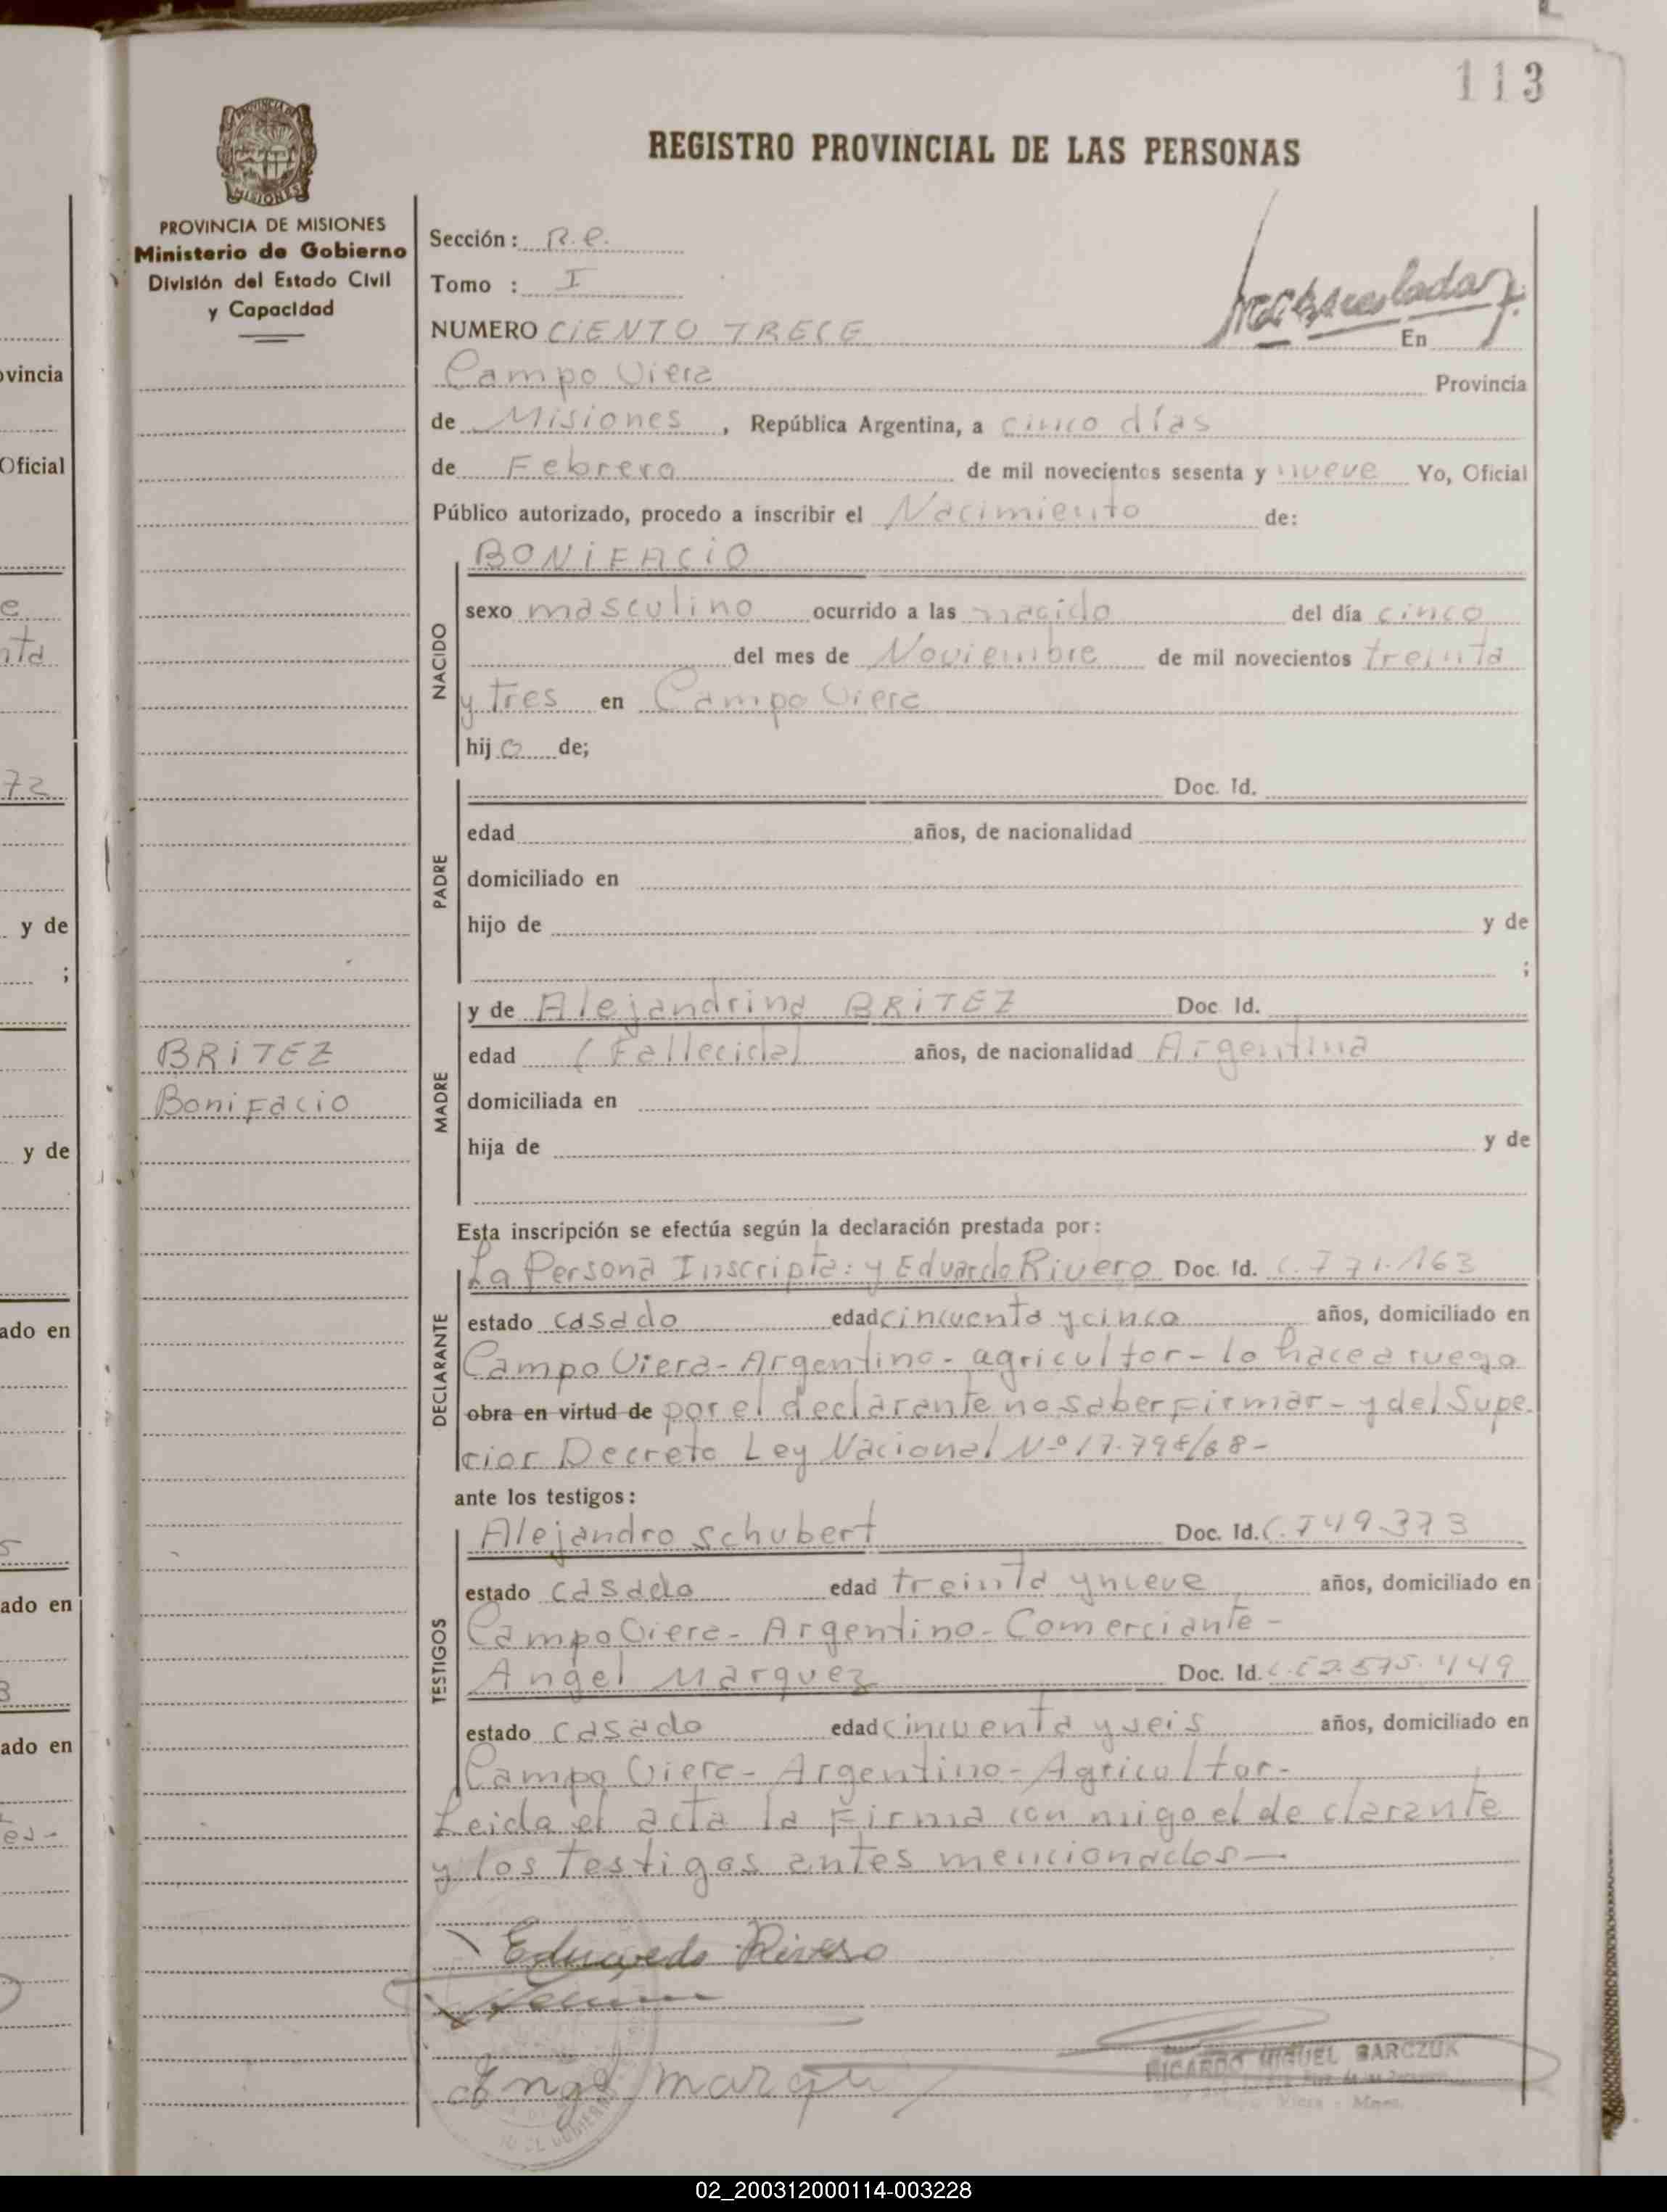 113
MISIONES
REGISTRO PROVINCIAL DE LAS PERSONAS
PROVINCIA DE MISIONES
Ministerio de Gobierno
División del Estado Civil
y Capacidad
Sección: R.e.
Tomo : I
NUMERO CIENTO TRECE En
Campo Viera Provincia
de Misiones, República Argentina, a cinco días
de Febrero de mil novecientos sesenta y nueve Yo, Oficial
Público autorizado, procedo a inscribir el Nacimiento de:
NACIDO
BONIFACIO
sexo masculino ocurrido a las nacido del día cinco
del mes de Noviembre de mil novecientos treinta
y tres en Campo Viera
hijo de;
PADRE
Doc. Id.
edad años, de nacionalidad
domiciliado en
hijo de y de
;
BRITEZ
Bonifacio
MADRE
y de Alejandrina BRITEZ Doc. Id.
edad (Fallecida) años, de nacionalidad Argentina
domiciliada en
hija de y de
Esta inscripción se efectúa según la declaración prestada por:
DECLARANTE
La Persona Inscripta: y Eduardo Rivero Doc. Id. C.771.163
estado casado edad cincuenta y cinco años, domiciliado en
Campo Viera- Argentino- agricultor- lo hace a ruego
obra en virtud de por el declarante no saber firmar - y del Supe
rior Decreto Ley Nacional Nº 17.798/68-
ante los testigos:
TESTIGOS
Alejandro Schubert Doc. Id. C.749.373
estado casado edad treinta y nueve años, domiciliado en
Campo Viera- Argentino- Comerciante-
Angel Marquez Doc. Id. 2.575.449
estado casado edad cincuenta y seis años, domiciliado en
Campo Viera- Argentino- Agricultor-
Leida el acta la firma con migo el de clarante
y los testigos antes mencionados-
Eduardo Rivero
Angel marque
RICARDO MIGUEL BARCZUK
vincia
Oficial
e
nta
72
y de
;
y de
ado en
5
ado en
3
ado en
02_200312000114-003228